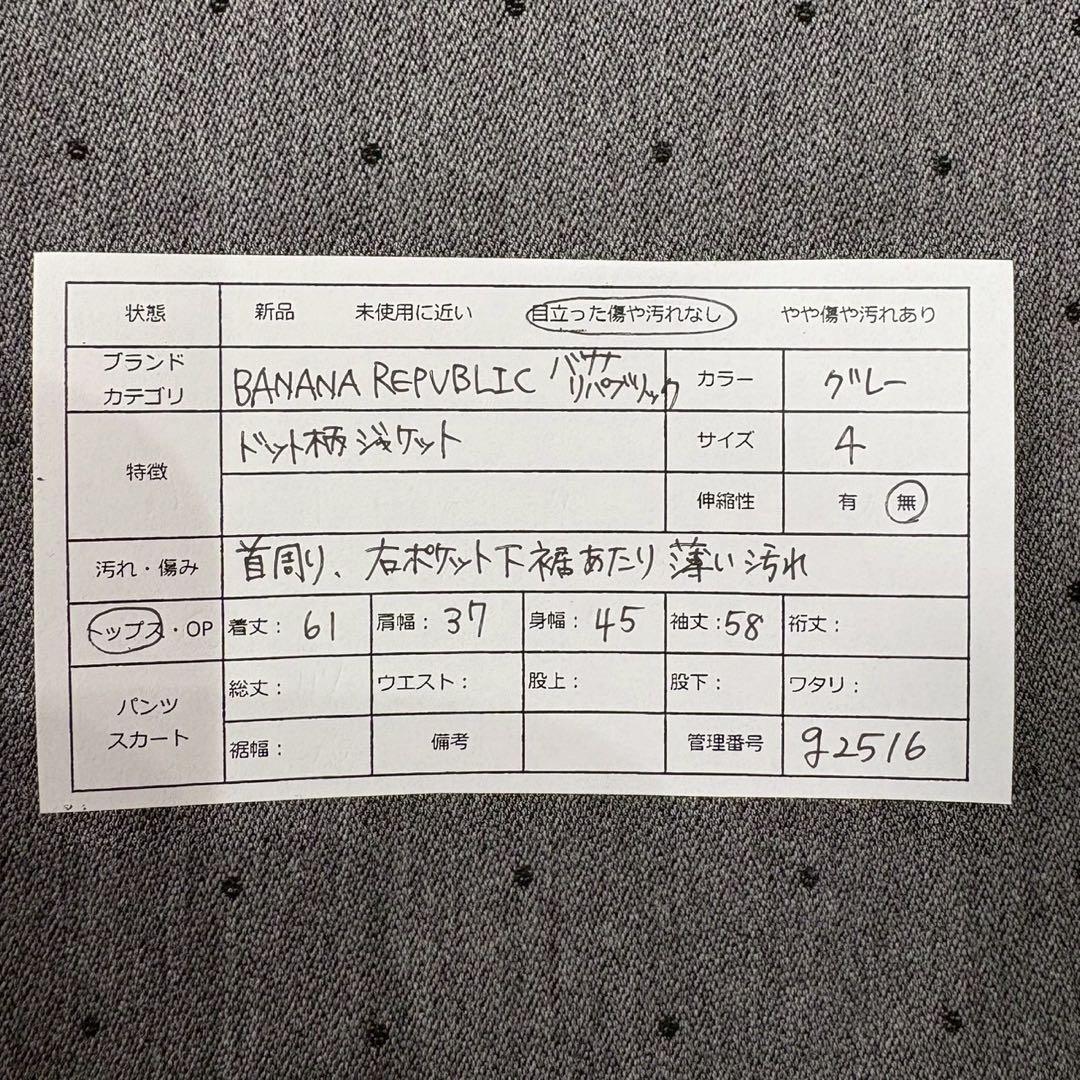 状態 新品 未使用に近い 目立った傷や汚れなし やや傷や汚れあり
ブランド
カテゴリ
BANANA REPUBLIC バナナ
リパブリック
カラー グレー
特徴
ドット柄ジャケット
サイズ 4
伸縮性 有 無
汚れ・傷み 首周り、右ポケット下裾あたり薄い汚れ
トップス・OP 着丈: 61 肩幅: 37 身幅: 45 袖丈:58 裄丈:
パンツ
スカート
総丈: ウエスト: 股上: 股下: ワタリ:
裾幅: 備考 管理番号 g2516